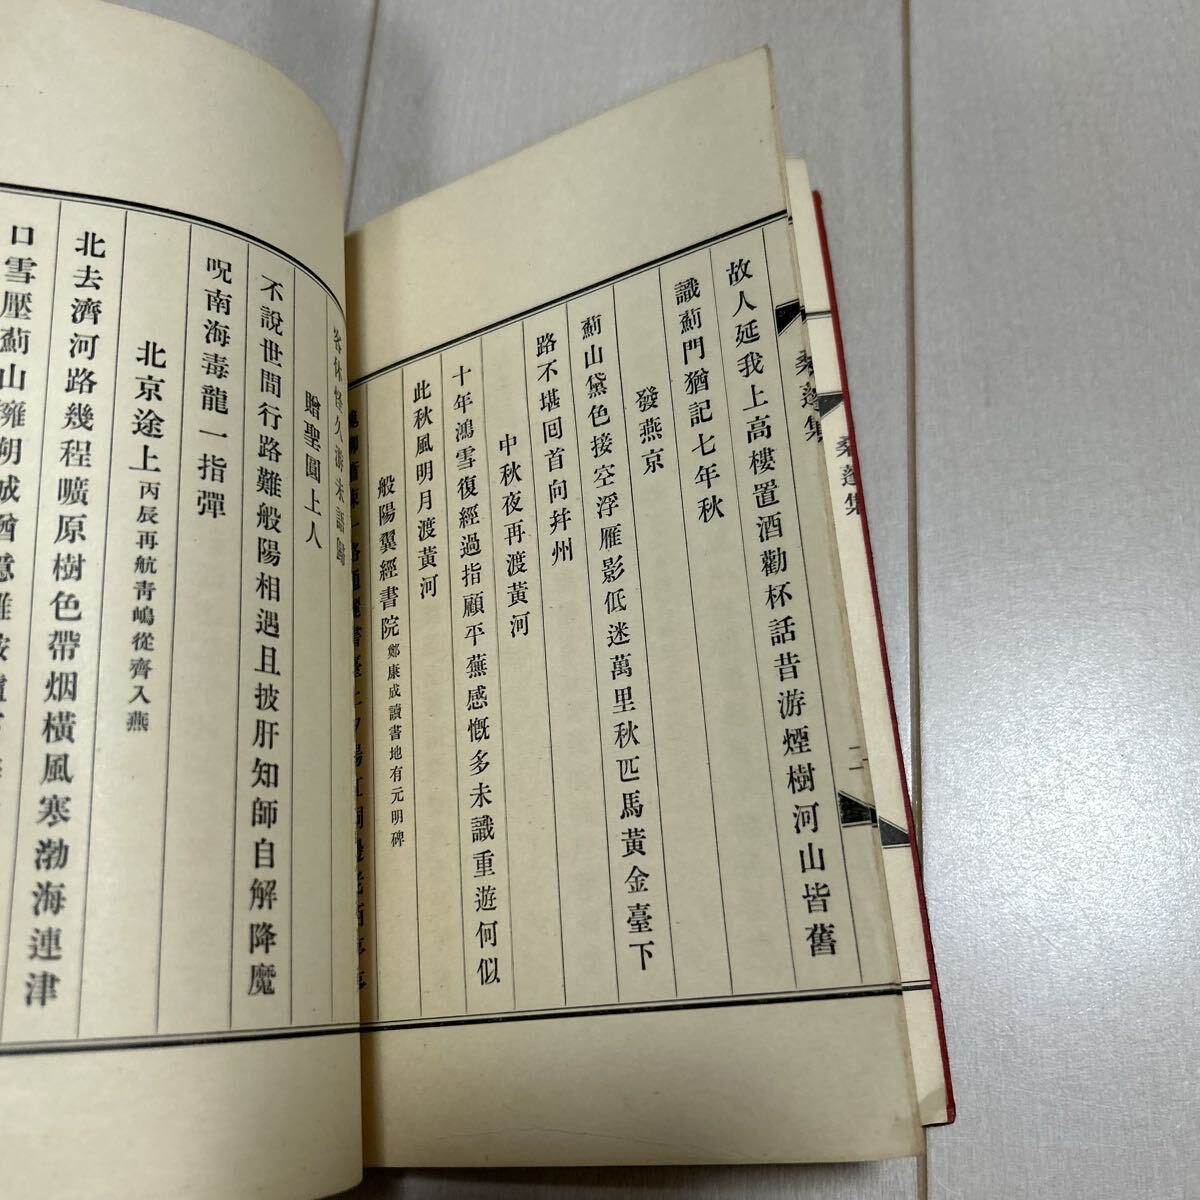 桑蓬集
桑蓬集
故人延我上高樓置酒勸杯話昔游煙樹河山皆舊
識薊門猶記七年秋
發燕京
薊山黛色接空浮雁影低迷萬里秋匹馬黃金臺下
路不堪囘首向幷州
中秋夜再渡黃河
十年鴻雪復經過指顧平蕪感慨多未識重遊何似
此秋風明月渡黃河
般陽翼經書院 鄭康成讀書地有元明碑
客休怪久游未話歸
贈聖圓上人
不說世間行路難般陽相遇且披肝知師自解降魔
呪南海毒龍一指彈
北京途上 丙辰再航靑嶋從齊入燕
北去濟河路幾程曠原樹色帶烟橫風寒渤海連津
口雪壓薊山擁朔